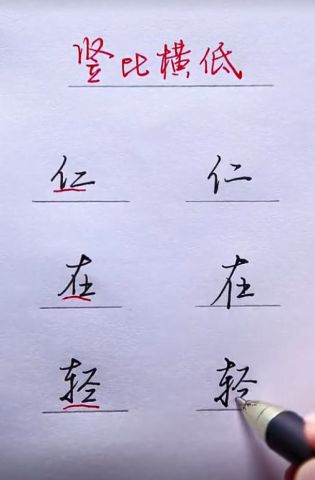 竖比横低
仁 仁
在 在
轻 轻